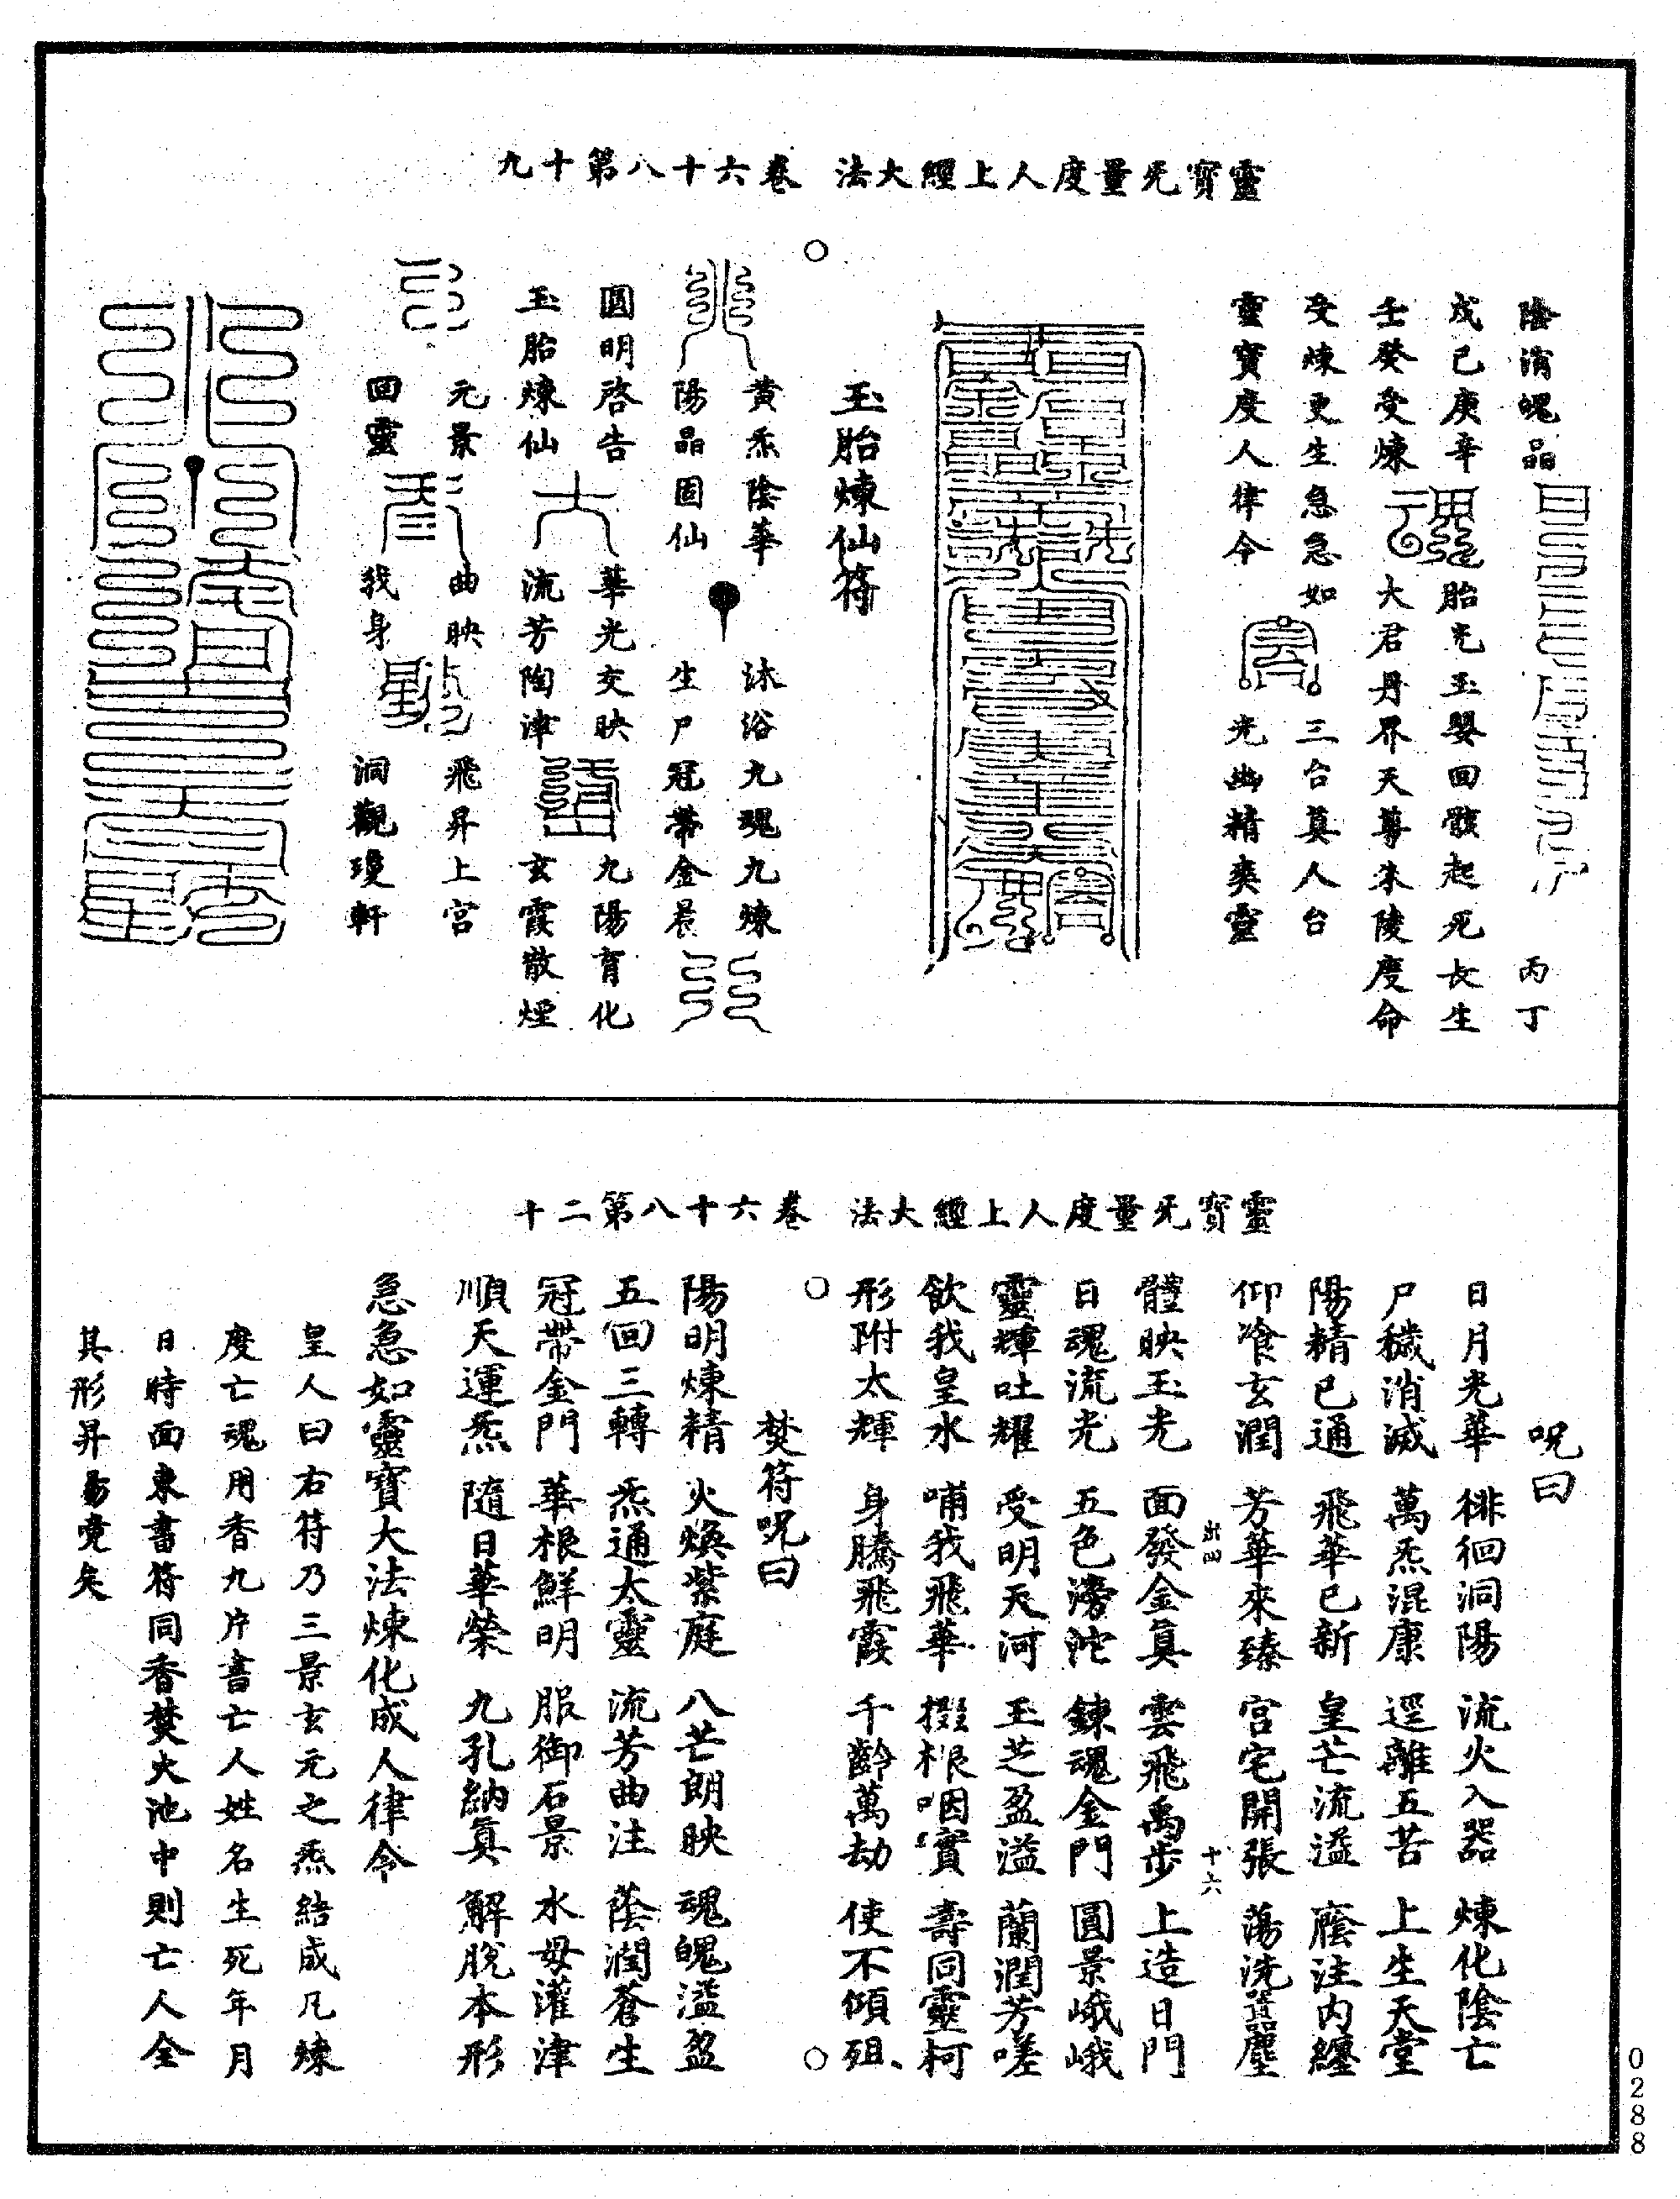 靈寶无量度人上經大法 卷六十八第十九
陰消魄晶 丙丁
戊己庚辛 胎光玉嬰回骸起死長生
壬癸受煉 大君丹界天尊朱陵度命
受煉更生急急如 三台莫人台
靈寶度人律令 光幽精爽靈
玉胎煉仙符
黃炁陰華 沐浴九魂九煉
陽晶固仙 生尸冠帶金晨
圓明啓告 華光交映 九陽育化
玉胎煉仙 流芳陶津 玄霞散煙
元景 曲映 飛昇上宮
回靈 我身 洞觀瓊軒
靈寶无量度人上經大法 卷六十八第二十
呪曰
日月光華 徘徊洞陽 流火入器 煉化陰亡
尸穢消滅 萬炁混康 逕離五苦 上生天堂
陽精已通 飛華已新 皇芒流溢 廕注内纏
仰飡玄潤 芳華來臻 宮宅開張 蕩洗囂塵
十六
體映玉光 面發金真 雲飛禹步 上造日門
日魂流光 五色滂沱 鍊魂金門 圓景峨峨
靈輝吐耀 受明天河 玉芝盈溢 蘭潤芳嗟
飲我皇水 哺我飛華 掇根咽實 壽同靈柯
形附太輝 身騰飛霞 千齡萬劫 使不傾殂
焚符呪曰
陽明煉精 火煥紫庭 八芒朗映 魂魄溢盈
五回三轉 炁通太靈 流芳曲注 蔭潤蒼生
冠帶金門 華根鮮明 服御石景 水母灌津
順天運炁 隨日華榮 九孔納真 解脫本形
急急如靈寶大法煉化成人律令
皇人曰右符乃三景玄元之炁結成凡煉
度亡魂用香九片書亡人姓名生死年月
日時面東書符同香焚火池中則亡人全
其形昇劫堯矣
0288